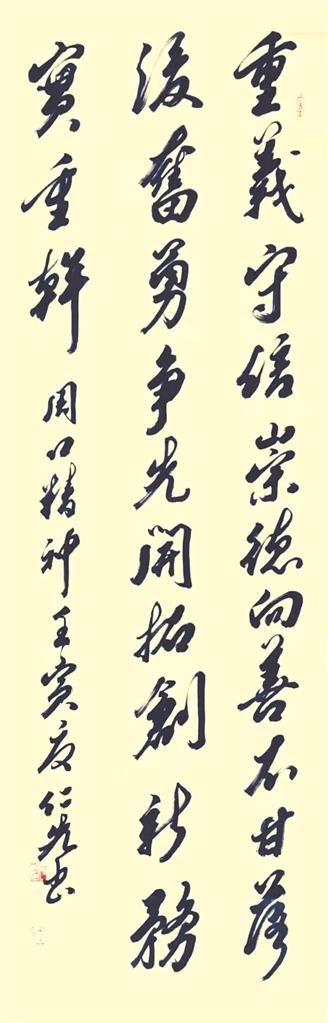 重義守信崇德向善不甘落
後奮勇爭先開拓創新務
實重幹
周口精神壬寅夏仁光書